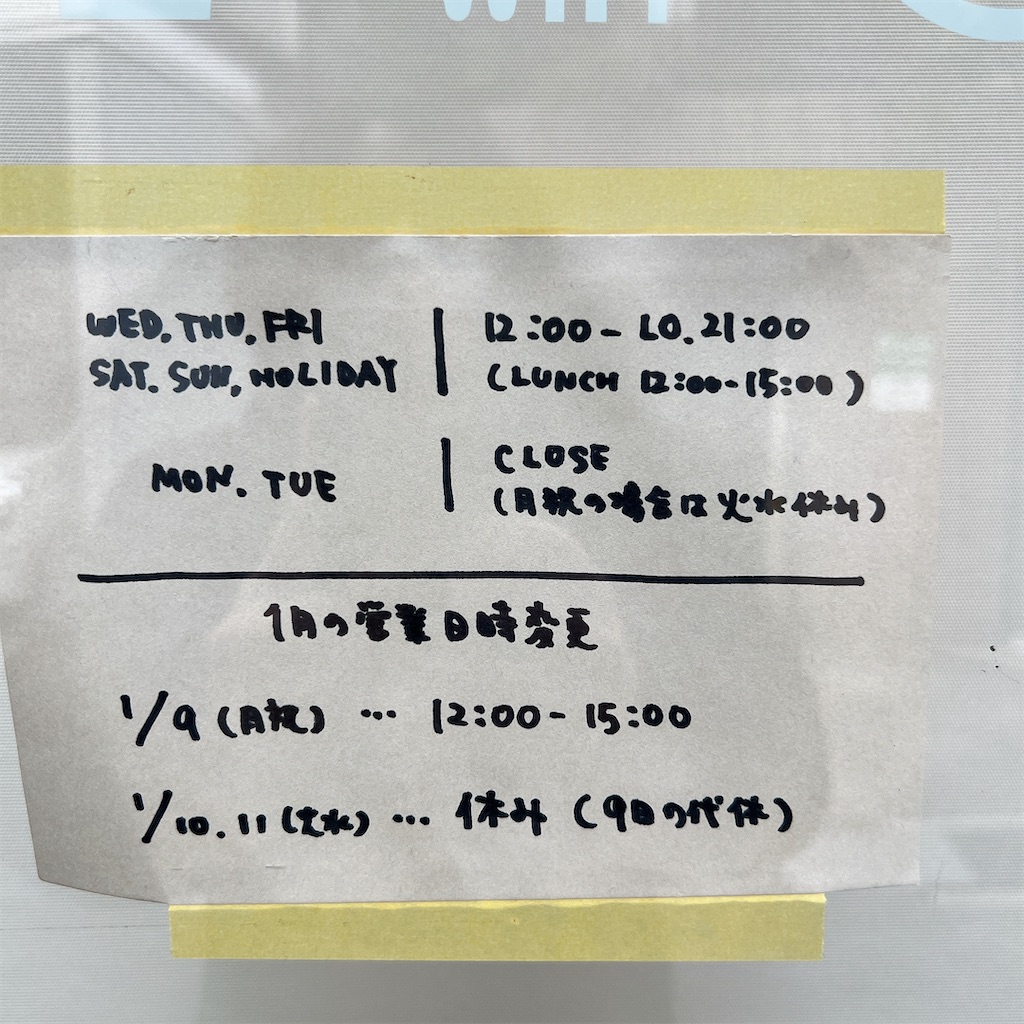 WiFi
WED. THU. FRI
SAT. SUN, HOLIDAY
12:00 - LO. 21:00
(LUNCH 12:00-15:00)
MON. TUE
CLOSE
(月祝の場合は火水休み)
1月の営業日時変更
1/9 (月祝) … 12:00 - 15:00
1/10.11 (火水) … 休み (9日の代休)